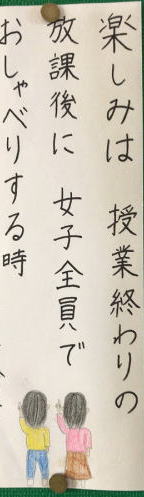 楽しみは 授業終わりの
放課後に 女子全員で
おしゃべりする時